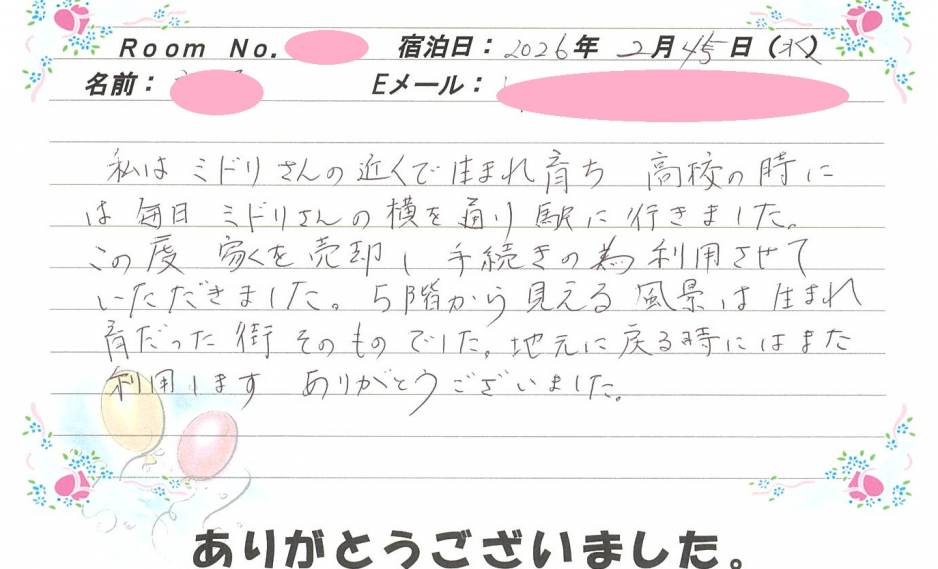 Room No. 宿泊日：2026年 2月45日（水）
名前： Eメール：
私は ミドリさんの近くで生まれ育ち 高校の時に
は毎日 ミドリさんの横を通り駅に行きました。
この度 家を売却し 手続きの為利用させて
いただきました。5階から見える風景は生まれ
育だった街そのものでした。地元に戻る時にはまた
利用します ありがとうございました。
ありがとうございました。